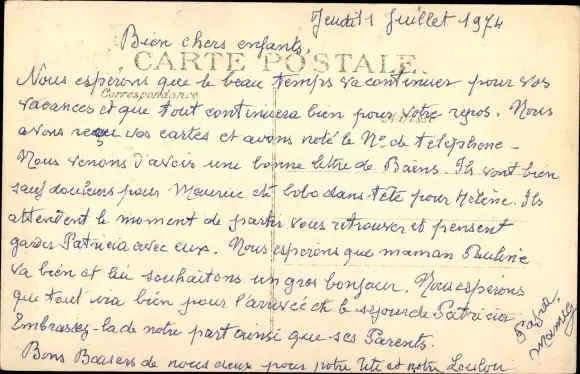 Jeudi 11 Juillet 1974
Bien chers enfants,
CARTE POSTALE
Nous espérons que le beau temps va continuer pour vos
Correspondance
vacances et que tout continuera bien pour votre repos. Nous
Adresse
avons reçu vos cartes et avons noté le No de téléphone -
Nous venons d'avoir une bonne lettre de Bains. Ils vont bien
sauf douleurs pour Maurice et bobo dans tête pour Hélène. Ils
attendent le moment de partir vous retrouver et pensent
garder Patricia avec eux. Nous espérons que maman Pauline
va bien et lui souhaitons un gros bonjour. Nous espérons
que tout ira bien pour l'arrivée et le séjour de Patricia
Embrassez-la de notre part ainsi que ses Parents.
Bons Baisers de nous deux pour notre Titi et notre Loulou
Papa
Mamy